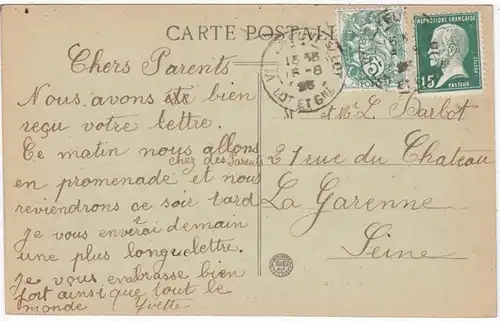 CARTE POSTALE
Chers Parents
Nous avons bien
reçu votre lettre.
Ce matin nous allons
chez des Parents
en promenade et nous
reviendrons ce soir tard
Je vous enverai demain
une plus longue lettre.
Je vous embrasse bien
fort ainsi que tout le
monde Yvette
15 35
15-8
25
LOT ET GNE
5
REPUBLIQUE FRANÇAISE
15
PASTEUR
M et Me L. Barbot
27 rue du Chateau
La Garenne
Seine